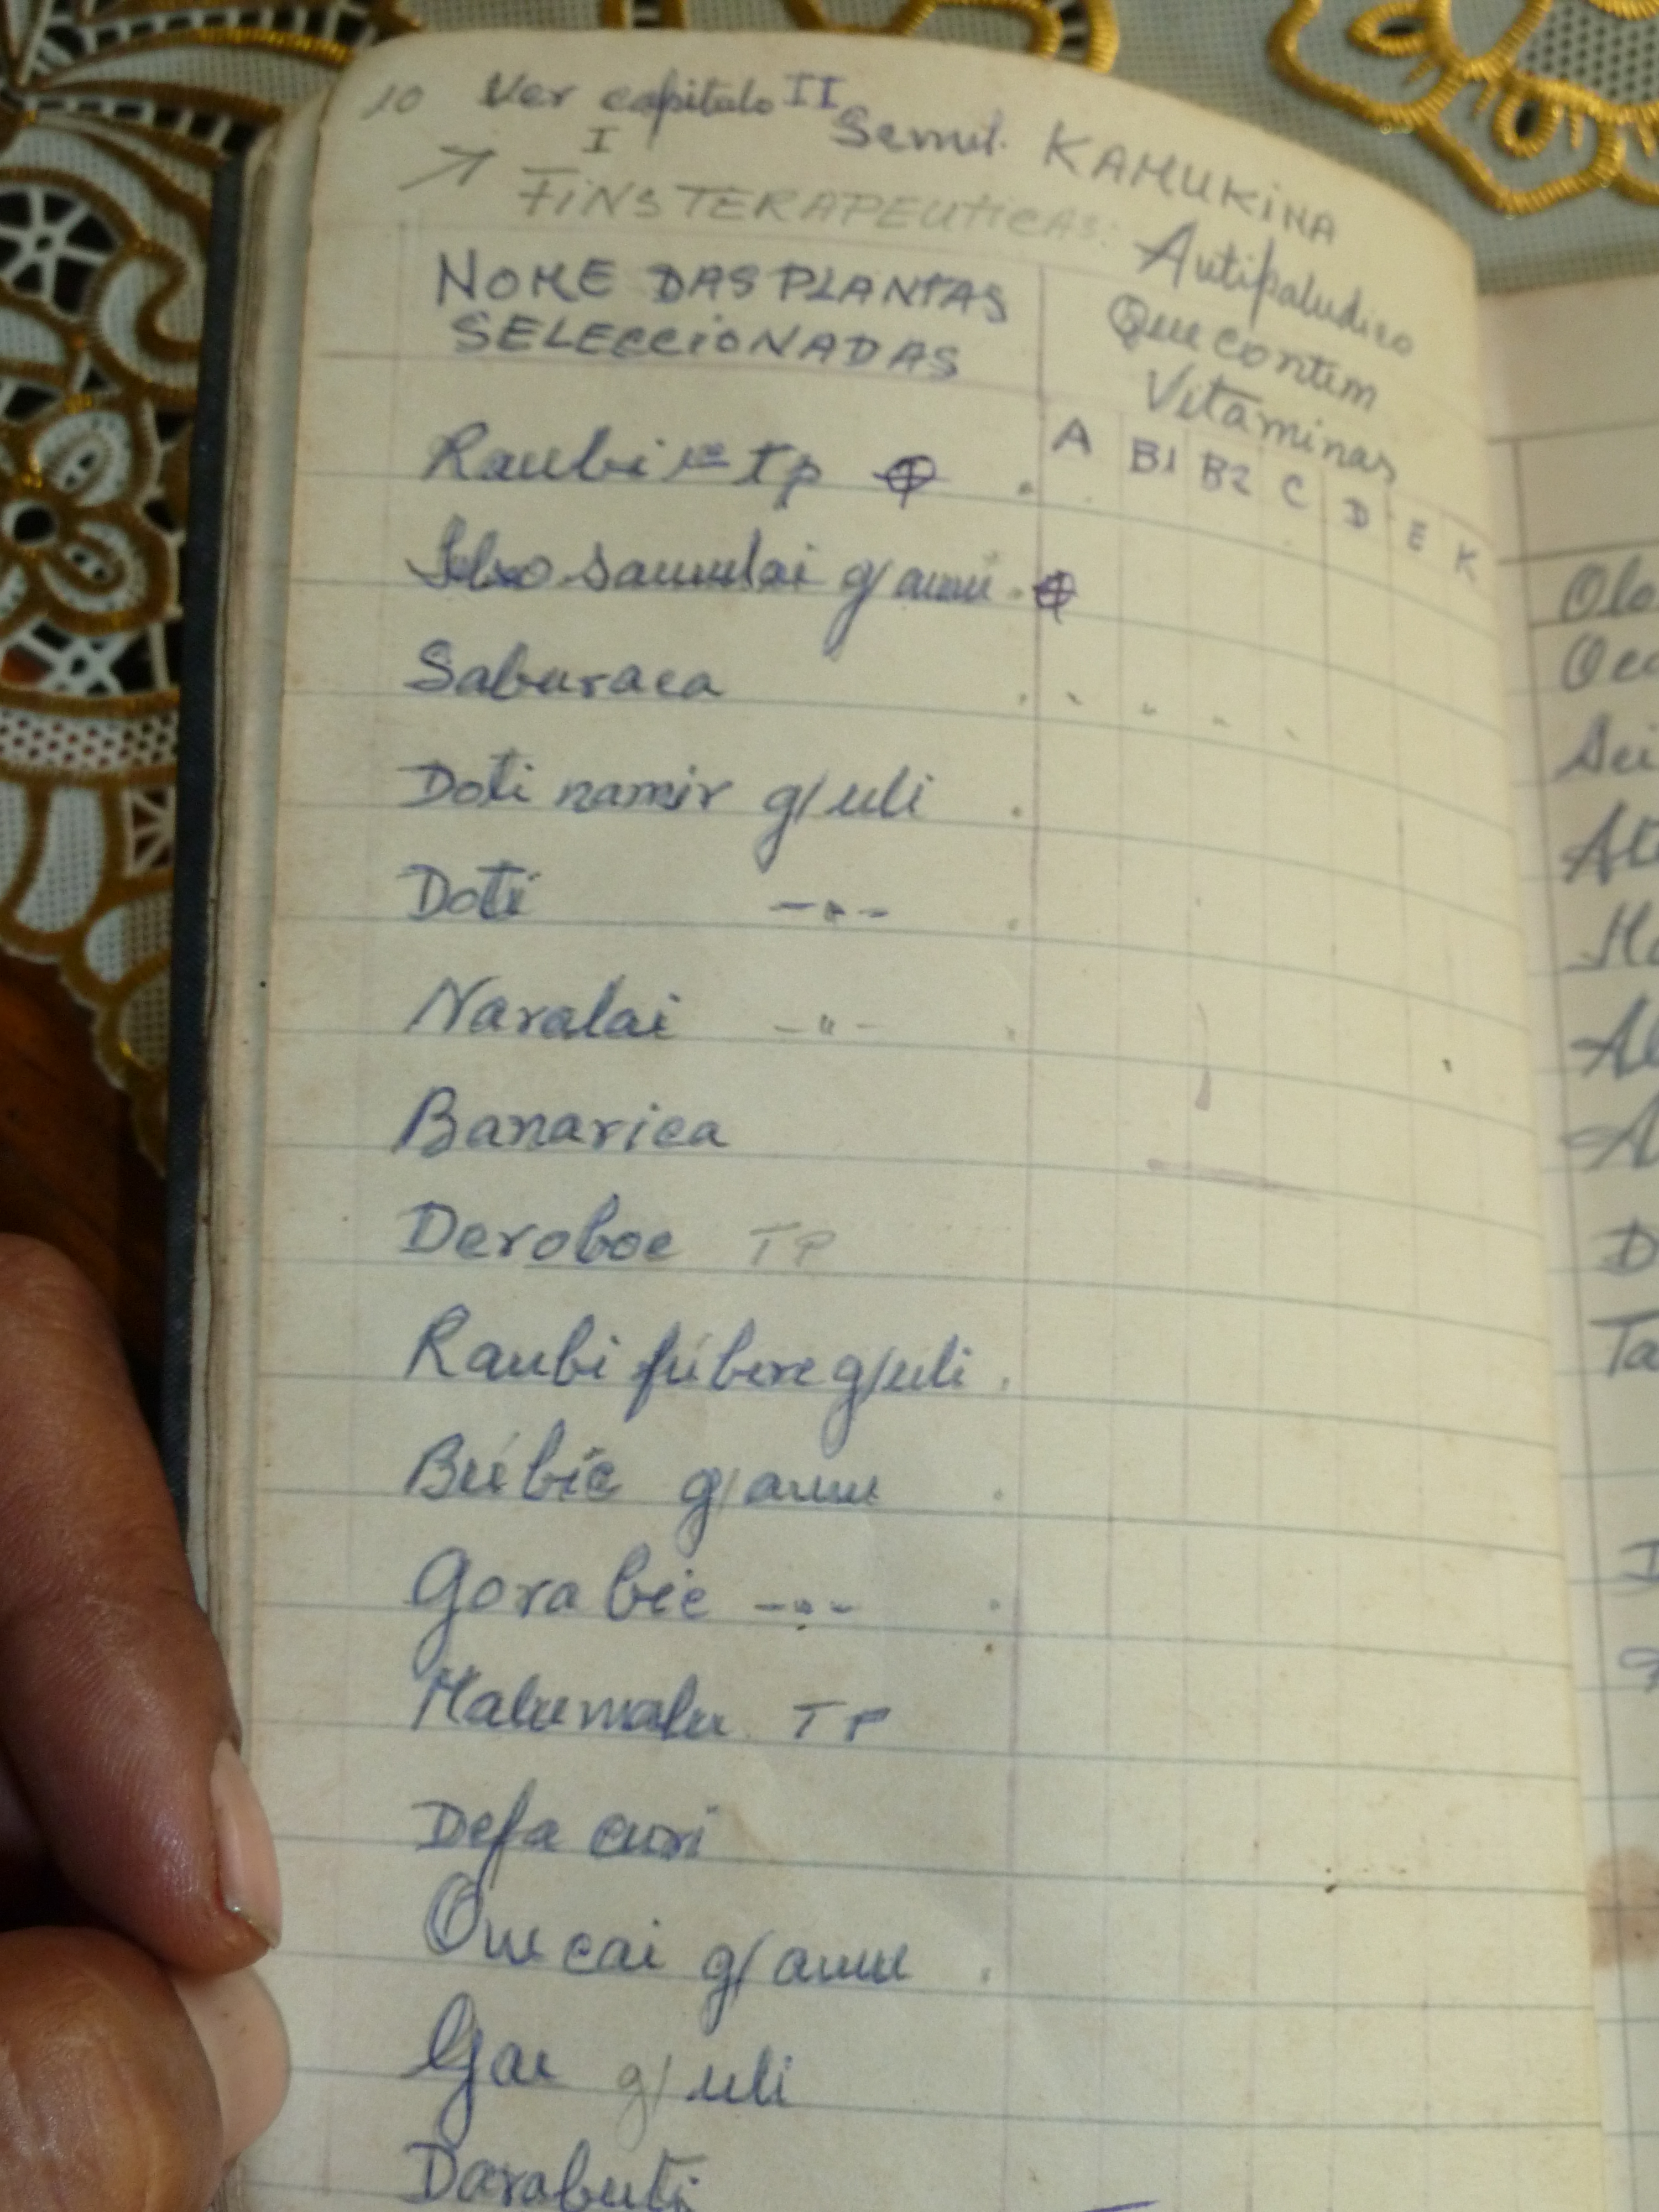 10 Ver capitulo II Semel. KAMUKINA
I
FINS TERAPEUTICAS: Antipaludico
NOME DAS PLANTAS
SELECCIONADAS
Que contem
Vitaminas
A B1 B2 C D E K
Raubi tp
samulai g/amu
Saburaca
Doti namir g/uli
Doti -"-
Naralai -"-
Banarica
Deroboe TP
Raubi fúbere g/uli
Búbíc g/amu
Gorabíc -"-
Malumalu TP
Defa curi
Ouu cai g/amu
Gau g/uli
Darabuti
Olo
Ta